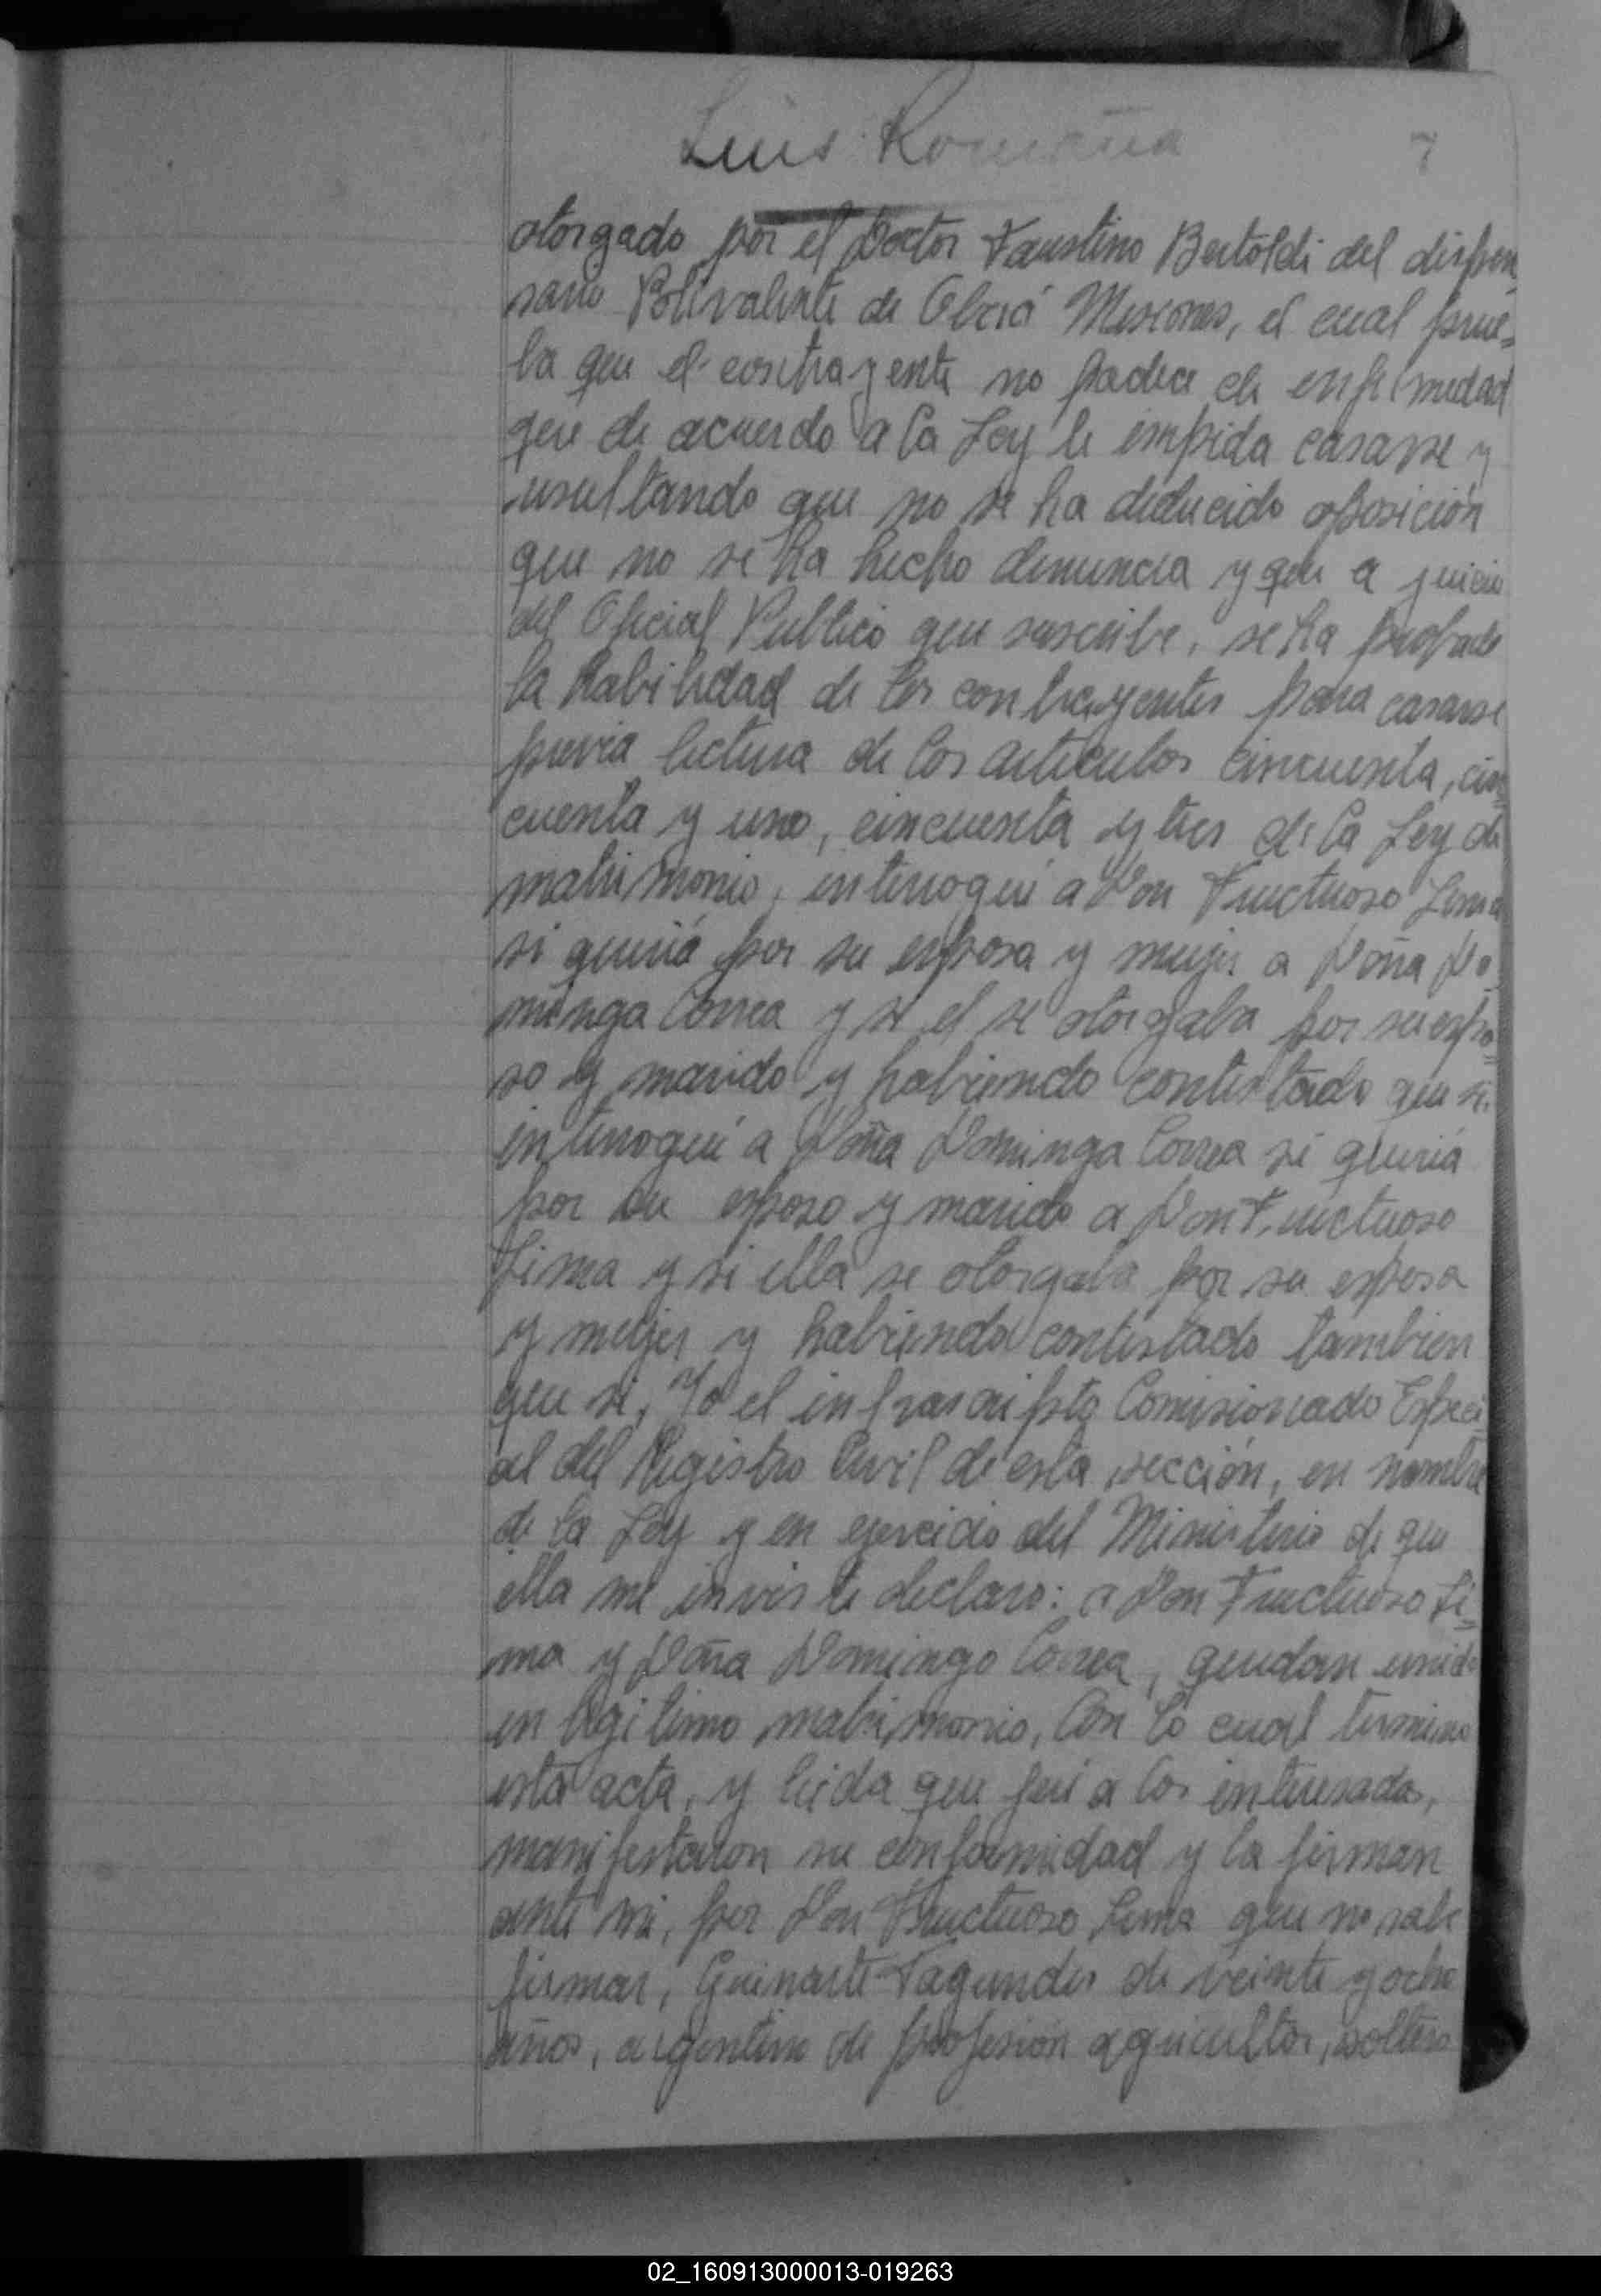 Luis Romaña
7
otorgado por el Doctor Faustino Bertoldi del dispen-
sario Polivalente de Oberá Misiones, el cual prue-
ba que el contrayente no padece de enfermedad
que de acuerdo a la Ley le impida casarse y
resultando que no se ha deducido oposición
que no se ha hecho denuncia y que a juicio
del Oficial Publico que suscribe, se ha probado
la habilidad de los contrayentes para casarse
previa lectura de los articulos cincuenta, cin-
cuenta y uno, cincuenta y tres de la Ley de
matrimonio, interrogué a Don Fructuoso Lima
si queriá por su esposa y mujer a Doña Do-
minga Correa y si el se otorgaba por su espo-
so y marido y habiendo contestado que si.
interrogué a Doña Dominga Correa si queriá
por su esposo y marido a Don Fructuoso
Lima y si ella se otorgaba por su esposa
y mujer y habiendo contestado tambien
que si, Yo el infrascripto Comisionado Especi-
al del Registro Civil de esta sección, en nombre
de la Ley y en ejercicio del Ministerio de que
ella me inviste declaro: a Don Fructuoso Li-
ma y Doña Domingo Correa, quedan unidos
en legitimo matrimonio, Con lo cual termino
esta acta, y leida que fué a los interesados,
manifestaron su conformidad y la firman
ante mi, por Don Fructuoso Lima que no sabe
firmar, Fagundes de veinte y ocho
años, argentino de profesión agricultor, soltero
02_160913000013-019263